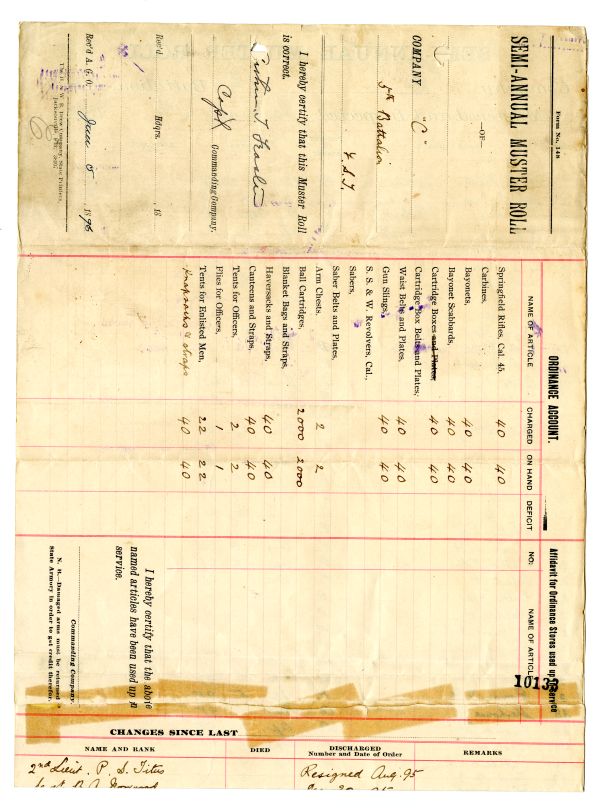 Form No. 148
SEMI-ANNUAL MUSTER ROLL
—OF—
COMPANY "C"
5th Battalion
F. S. T.
I hereby certify that this Muster Roll
is correct.
Capt Commanding Company.
Rec'd. Hdqrs. 18
Rec'd A. G. O. Jan 5 1896
ORDINANCE ACCOUNT.
NAME OF ARTICLE CHARGED ON HAND DEFICIT
Springfield Rifles, Cal. 45, 40 40
Carbines,
Bayonets, 40 40
Bayonet Scabbards, 40 40
Cartridge Boxes and Plates, 40 40
Cartridge Box Belts and Plates,
Waist Belts and Plates, 40 40
Gun Slings, 40 40
S. S. & W. Revolvers, Cal.,
Sabers,
Saber Belts and Plates,
Arm Chests, 2 2
Ball Cartridges, 2000 2000
Blanket Bags and Straps,
Haversacks and Straps, 40 40
Canteens and Straps, 40 40
Tents for Officers, 2 2
Flies for Officers, 1 1
Tents for Enlisted Men, 22 22
Knapsacks & straps 40 40
Affidavit for Ordinance Stores used up in Service
NO. NAME OF ARTICLE
1013
I hereby certify that the above
named articles have been used up in
service.
Commanding Company.
N. B.—Damaged arms must be returned to
State Armory in order to get credit therefor.
CHANGES SINCE LAST
NAME AND RANK DIED DISCHARGED REMARKS
Number and Date of Order
2nd Lieut. P. S. Titus Resigned Aug. 95